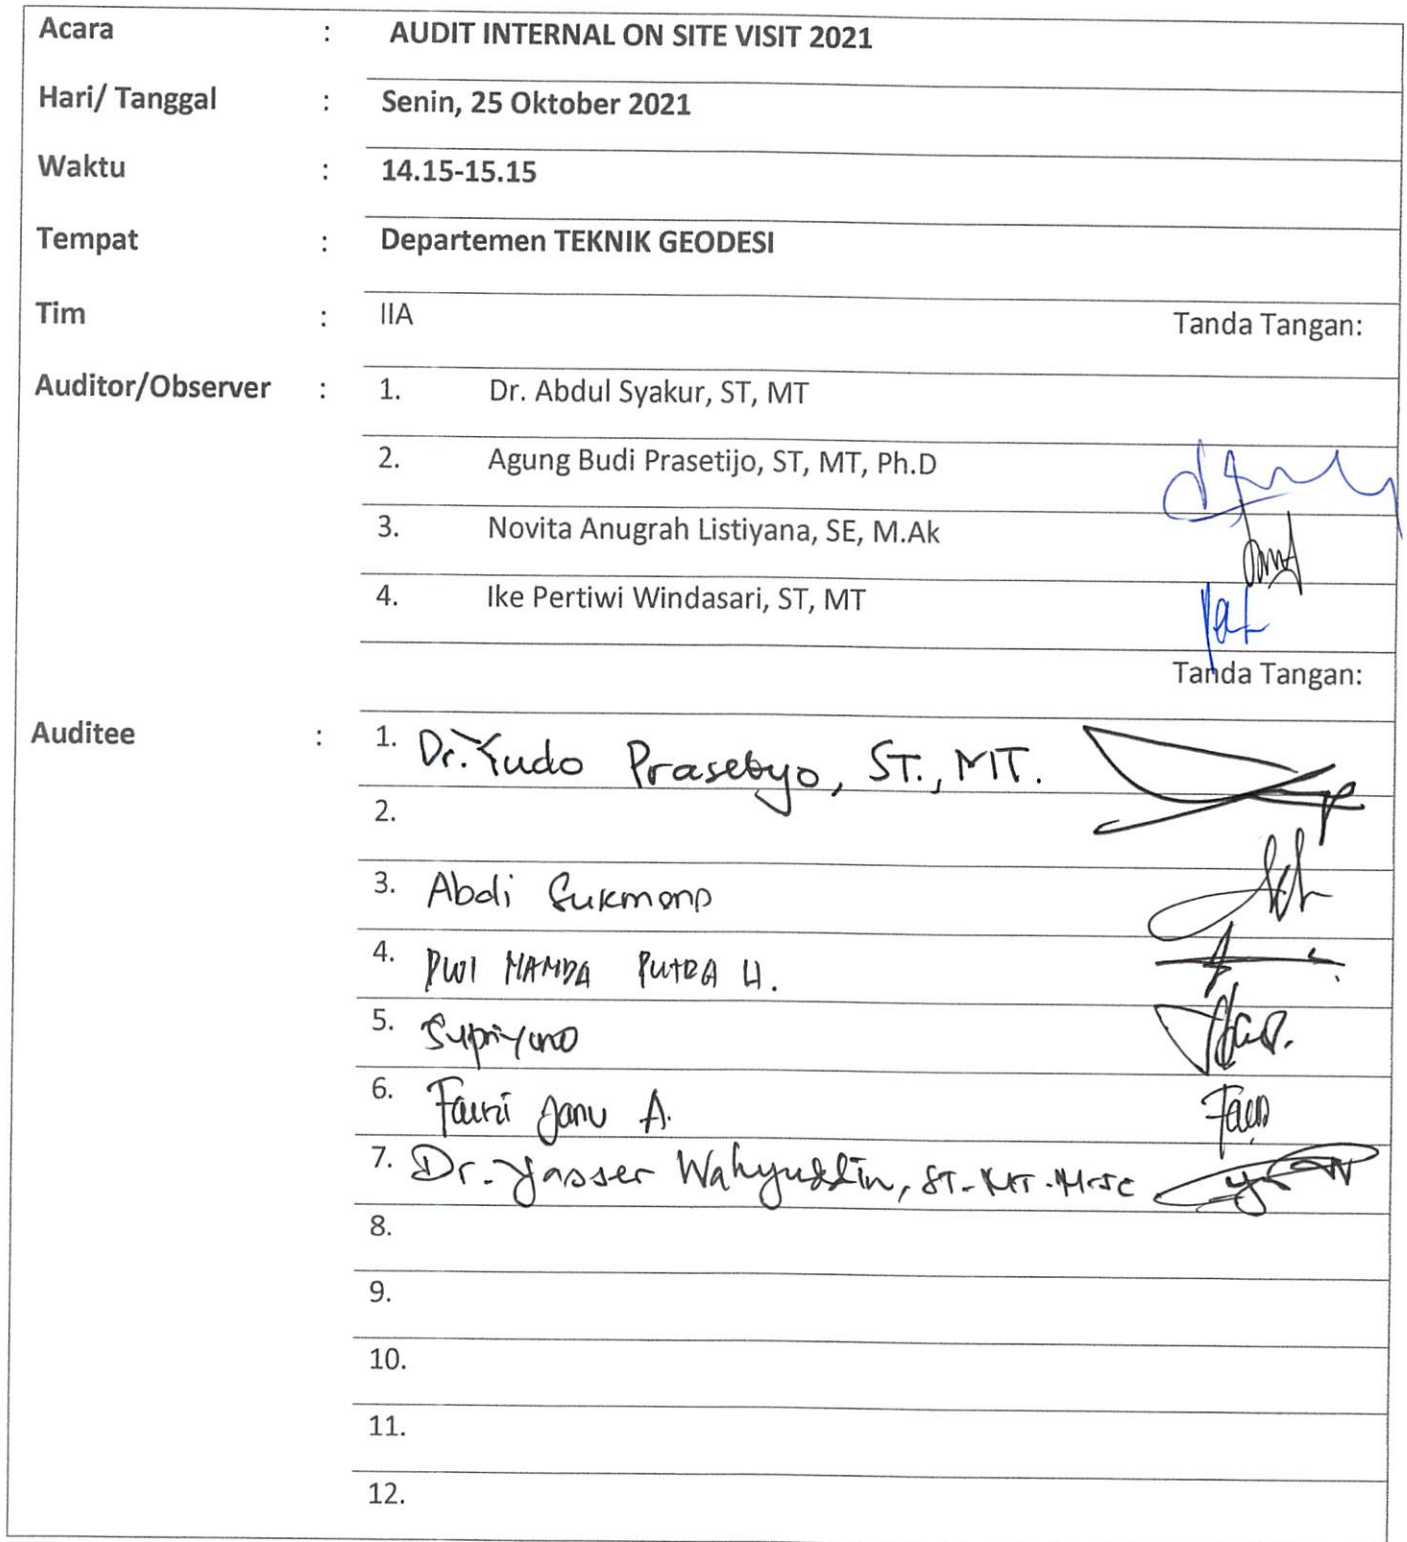 Acara : AUDIT INTERNAL ON SITE VISIT 2021
Hari/ Tanggal : Senin, 25 Oktober 2021
Waktu : 14.15-15.15
Tempat : Departemen TEKNIK GEODESI
Tim : IIA Tanda Tangan:
Auditor/Observer : 1. Dr. Abdul Syakur, ST, MT
2. Agung Budi Prasetijo, ST, MT, Ph.D
3. Novita Anugrah Listiyana, SE, M.Ak
4. Ike Pertiwi Windasari, ST, MT
Tanda Tangan:
Auditee : 1. Dr. Yudo Prasetyo, ST., MT.
2.
3. Abdi Sukmono
4. DWI NANDA PUTRA H.
5. Supriyono
6. Fauzi Janu A.
7. Dr. Yasser Wahyuddin, ST. MT. M.Sc
8.
9.
10.
11.
12.